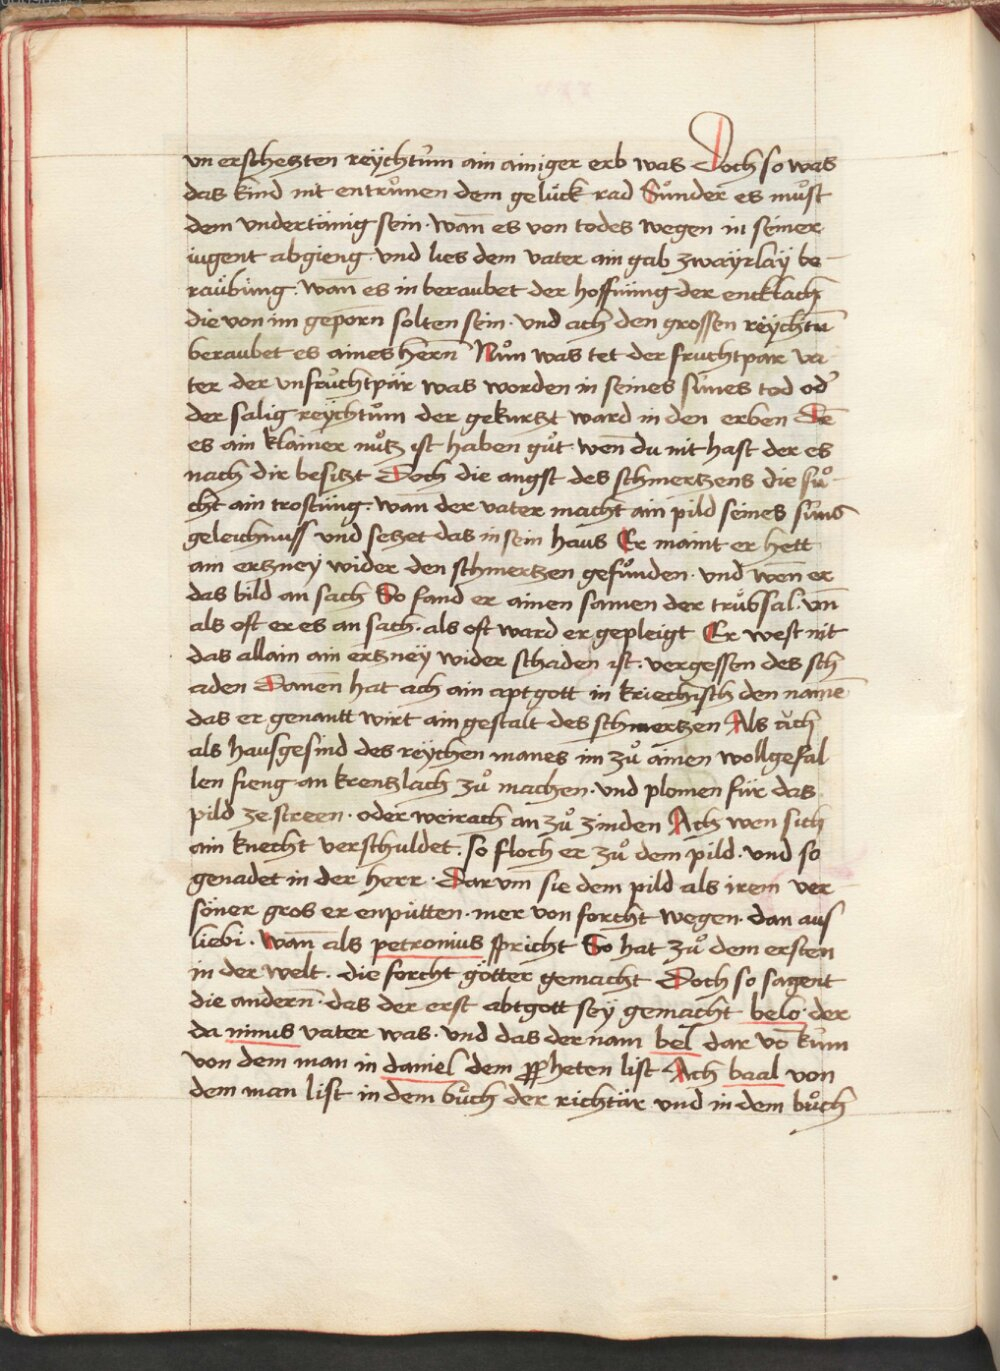 vn erschetzten reÿchtům ain ainiger erb was Doch so was
das kind nit entrůnen dem gelück rad Sůnder̄ es můst
dem vndertänig sein · wan̄ es von todes wegen in seiner
iugent abgieng · vnd lies dem vater ain gab zwaÿrlaÿ be-
raübüng · wan̄ es in beraubet der hoffnüng der encklach
die von im geporn solten sein · vnd ach den grossen reÿchtū
beraubet es aines hern̄ Nůn was tet der fruchtpär va
ter der vnfrůchtpär was worden in seines sünes tod od'
der salig reÿchtům der gekurtzt ward in den erben Dē
es ain klainer nůtz ist haben gůt wen̄ du nit hast der es
nach dir besitzt Doch die angst des schmertzens die sů-
cht ain trostüng · wan der vater macht ain pild seines süns
geleichnuss vnd setzet das in sein haus Er maint er hett
ain ertzney wider den schmertzen gefůnden · vnd wen̄ er
das bild an sach So fand er ainen samen der trůbsal · vn̄
als oft er es an sach · als oft ward er gepleigt Er west nit
das allain ain ertzneÿ wider schaden ist · vergessen des sch
aden Danen̄ hat ach ain aptgott in kriechisch den namē
das er genantt wirt ain gestalt des schmertzen Als ach
als hausgesind des reÿchen manes im zů ainen wollgefal
len fieng an krentzlach zů machen · vnd plomen für das
pild ze streen · oder weirach an zů zinden Ach wen sich
ain knecht verschuldet · so floch er zů dem pild · vnd so
genadet in der herr · Darvm̄ sie dem pild als irem ver
söner gros er enpütten · mer von forcht wegen · dan aus
liebi · Wan̄ als petronius spricht So hat zů dem ersten
in der welt · die forcht götter gemacht Doch so sagent
die andern̄ · das der erst abtgott seÿ gemacht belo · der
da ninus vater was · vnd das der nam bel dar vō kům
von dem man in daniel dem ꝓpheten list Ach baal von
dem man list in dem bůch der richtär vnd in dem bůch